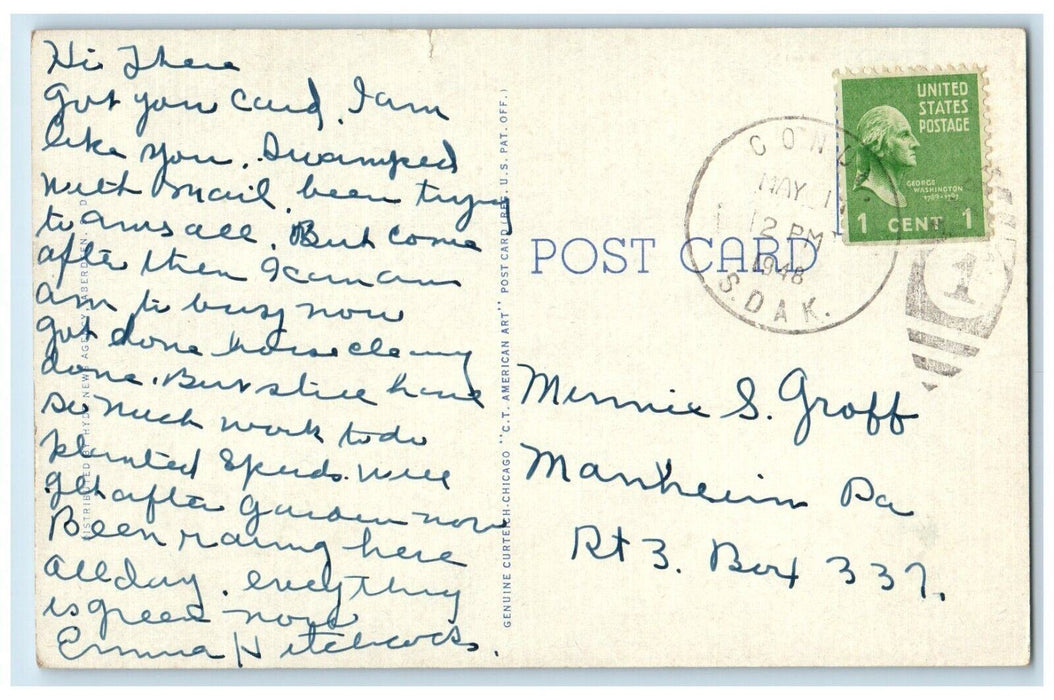 Hi There
Got you card. I am
like you. Swamped
with mail. been tryn
to ans all. But come
after then I can ans
am to busy now
got done house cleaning
done. But still have
so much work to do
planted Spuds. Will
get after garden now
Been raining here
all day. everything
is green now
Emma Hitchcocks.
DISTRIBUTED BY HYDE NEWS AGENCY, ABERDEEN,
GENUINE CURTEICH-CHICAGO "C.T. AMERICAN ART" POST CARD (REG. U.S. PAT. OFF.)
POST CARD
MAY 1
12 PM
1948
S. DAK.
UNITED
STATES
POSTAGE
GEORGE
WASHINGTON
1789-1797
1 CENT 1
1
Minnie S. Groff
Manheim Pa
Rt 3. Box 337.